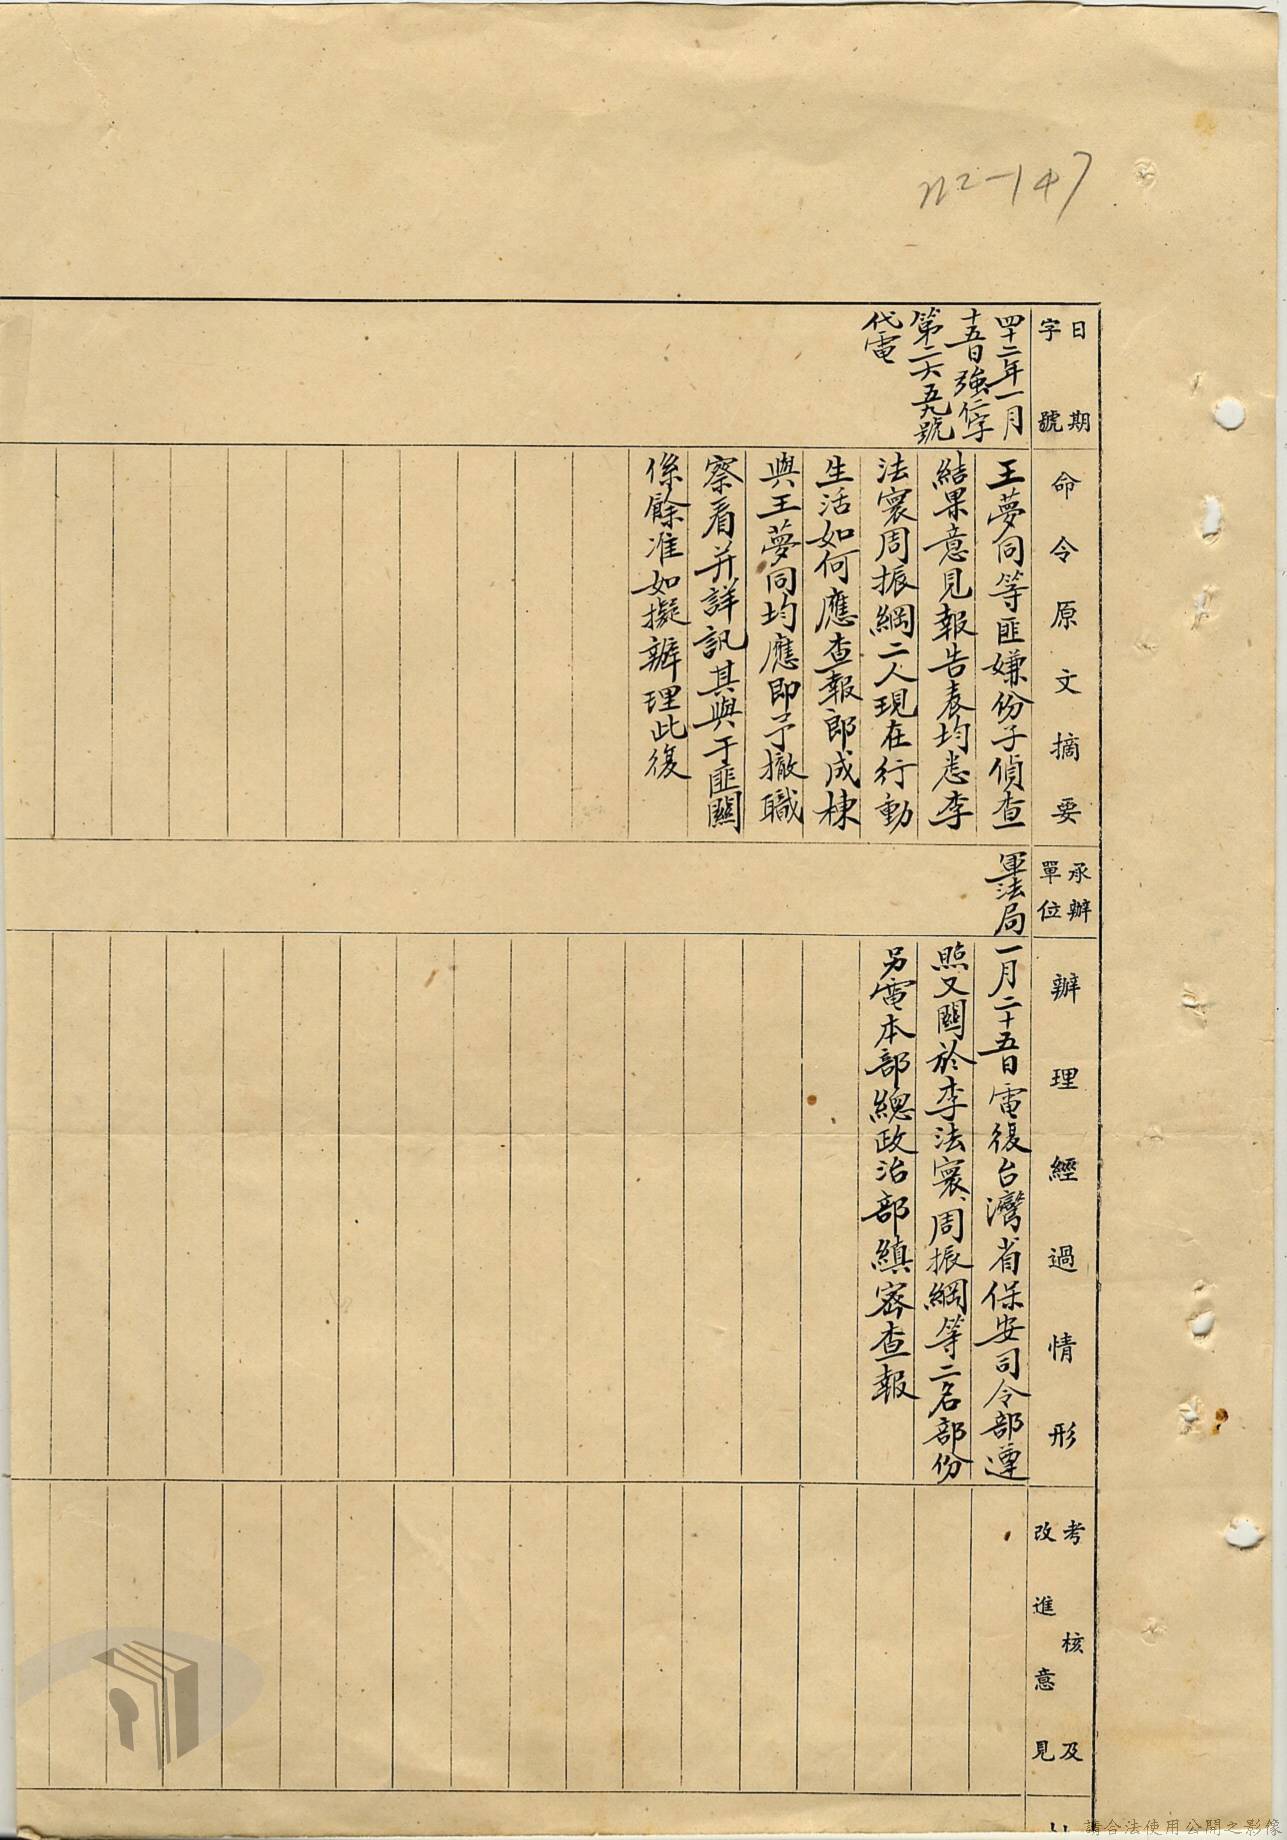 112-147
日期
字號
命令原文摘要
承辦
單位
辦理經過情形
考核及
改進意見
四十二年一月
十五日強仁字
第二六五九號
代電
王夢同等匪嫌份子偵查
結果意見報告表均悉李
法寰周振綱二人現在行動
生活如何應查報郎成棟
與王夢同均應即予撤職
察看并詳訊其與于匪關
係餘准如擬辦理此復
軍法局
一月二十五日電復台灣省保安司令部遵
照又關於李法寰、周振綱等二名部份
另電本部總政治部縝密查報
請合法使用公開之影像